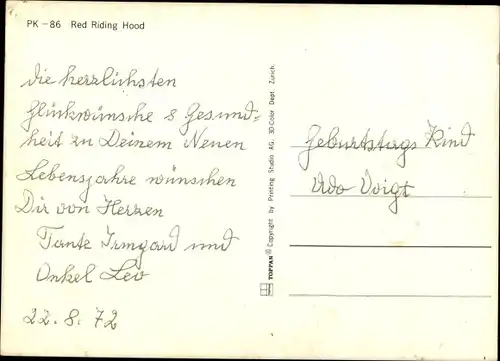 PK – 86 Red Riding Hood
die herzlichsten
Glückwünsche & Gesund=
heit zu Deinem Neuen
Lebensjahre wünschen
Dir von Herzen
Tante Irmgard und
Onkel Leo
22.8.72
TOPPAN® Copyright by Printing Studio AG, 3D-Color Dept. Zurich.
Geburtstags Kind
Udo Voigt